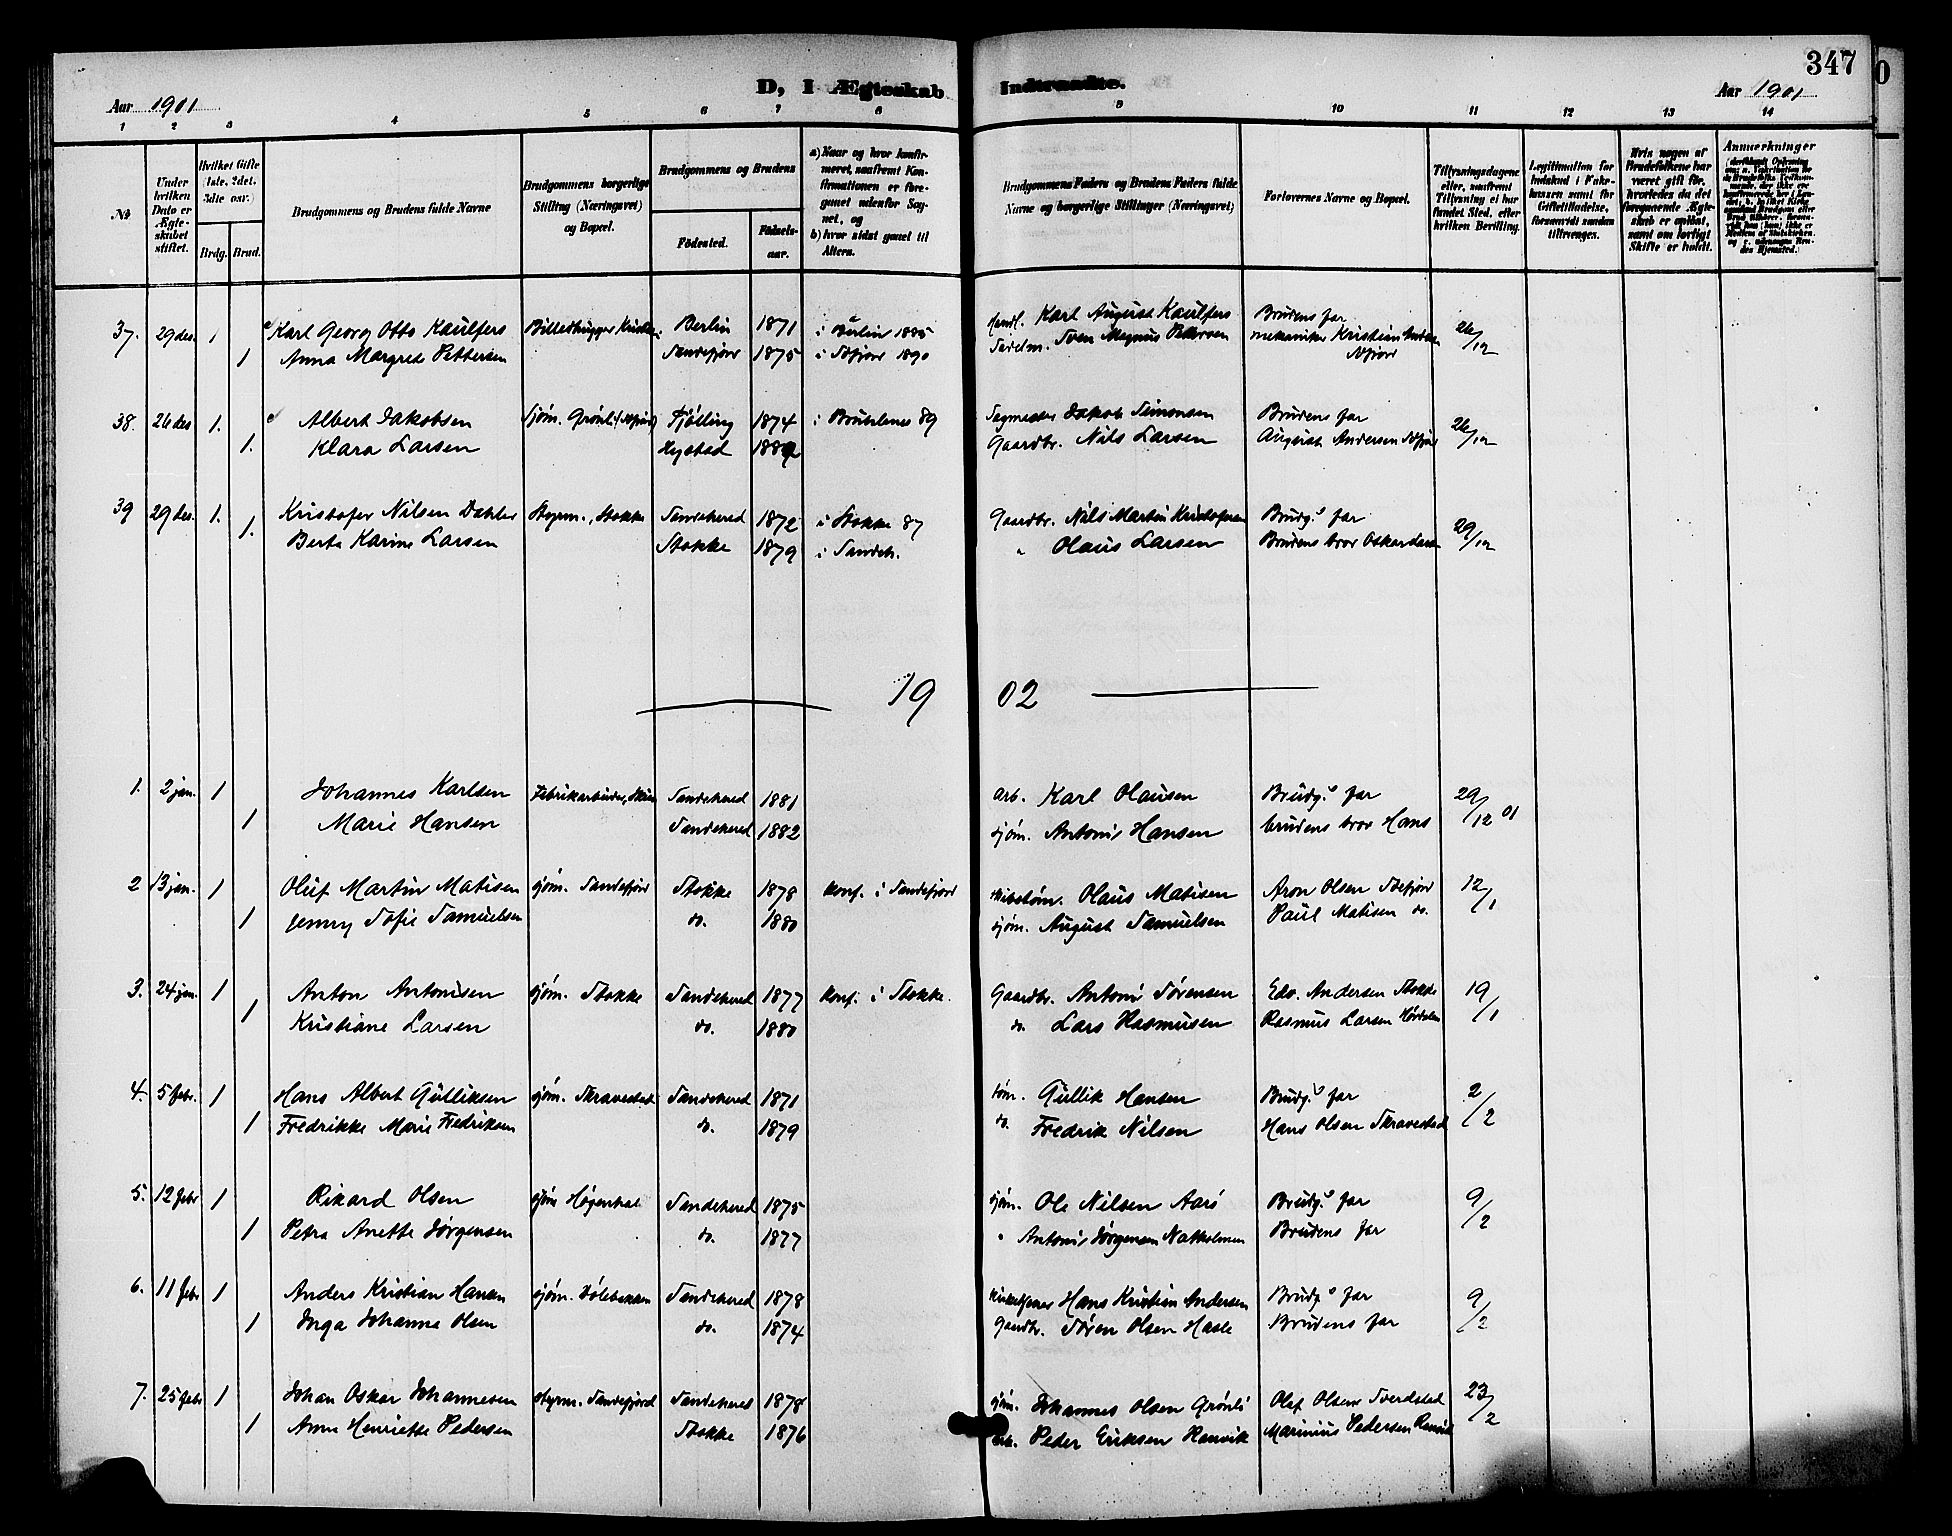 347
D, I Ægteskab Indtraadte.
Aar 1901 Aar 1901
1 2 3 4 5 6 7 8 9 10 11 12 13 14
No. Under hvilken Dato er Ægteskabet stiftet. Hvilket Gifte (1ste, 2det, 3die osv.) Brdg. Brud. Brudgommens og Brudens fulde Navne Brudgommens borgerlige Stilling (Næringsvei) og Bopæl. Brudgommens og Brudens Fødested. Fødselsaar. a) Naar og hvor konfirmeret, saafremt Konfirmationen er foregaaet udenfor Sognet, og b) hvor sidst gaaet til Alters. Brudgommens Faders og Brudens Faders fulde Navne og borgerlige Stillinger (Næringsvei) Forlovernes Navne og Bopæl. Tillysningsdagene eller, saafremt Tillysning ei har fundet Sted, efter hvilken Bevilling. Legitimation for Indskud i Enkekassen samt for Giftetilladelse, forsaavidt saadan tiltrænges. Hvis nogen af Brudefolkene har været gift før, hvorledes da det foregaaende Ægteskab er opløst, samt om lovligt Skifte er holdt. Anmerkninger
37. 29 des. 1 Karl Georg Otto Kaulfers Billedhugger Berlin 1871 i Berlin 1885 Karl August Kaulfers Brudens far 26/12
1 Anna Margrete Pettersen Sandefjord 1875 i Sdfjord 1890 Sadelm. Sven Magnus Pettersen mekaniker Kristian
38. 26 des 1. Albert Jakobsen Sjøm. Grønli (Sdfjord) Tjølling 1874 i Brunlanes 89 Sagmester Jakob Simonsen Brudens far 26/12
1. Klara Larsen 188 Gaardbr. Nils Larsen August Andersen Sdfjord
39 29 des. 1. Kristofer Nilsen Dahler Styrm., Stokke Sandehered 1872 i Stokke 87 Gaardbr. Nils Martin Kristofersen Brudg.s far 29/12
1. Berte Karine Larsen Stokke 1879 i Sandeh. " Olaus Larsen Brudens bror Oskar Larsen
19 02
1. 2 jan. 1 Johannes Karlsen Fabrikarbeider, Sandehered 1881 arb. Karl Olausen Brudg.s far 29/12 01
1 Marie Hansen Sandehered 1882 sjøm. Antoni Hansen brudens bror Hans
2 13 jan. 1 Oluf Martin Matisen sjøm. Sandefjord Stokke 1878 konf. i Sandefjord Olaus Matisen Aron Olsen Sdefjord 12/1
1 Jenny Sofie Samuelsen do. 1880 sjøm. August Samuelsen Paul Matisen do.
3. 24 jan. 1 Anton Antonisen sjøm. Stokke Sandehered 1877 konf. i Stokke. Gaardbr. Antoni Sørensen Edv. Andersen Stokke 19/1
1 Kristiane Larsen do. 1880 do. Lars Rasmusen Rasmus Larsen
4. 5 febr. 1 Hans Albert Gulliksen sjøm. Skravestad Sandehered 1871 tøm. Gullik Hansen Brudg.s far 2/2
1 Fredrikke Marie Fredriksen do. 1879 do. Fredrik Nilsen Hans Olsen Skravestad
5. 12 febr 1 Rikard Olsen sjøm Sandehered 1875 sjøm. Ole Nilsen Aarø Brudg.s far 9/2
1 Petra Anette Jørgensen do. 1877 " Antoni Jørgensen Natholmen Brudens far
6. 11 febr 1 Anders Kristian Hansen sjøm. Dølebakken Sandehered 1878 kirketjener Hans Kristian Andersen Brudg.s far 9/2
1 Inga Johanne Olsen do. 1874 Gaardbr. Søren Olsen Hasle Brudens far
7. 25 febr 1 Johan Oskar Johannesen styrm. Sandefjord Sandehered 1878 sjøm. Johannes Olsen Grønli Olaf Olsen 23/2
1 Anne Henriette Pedersen Stokke 1876 Peder Eriksen Ranvik Marinius Pedersen Ranvik